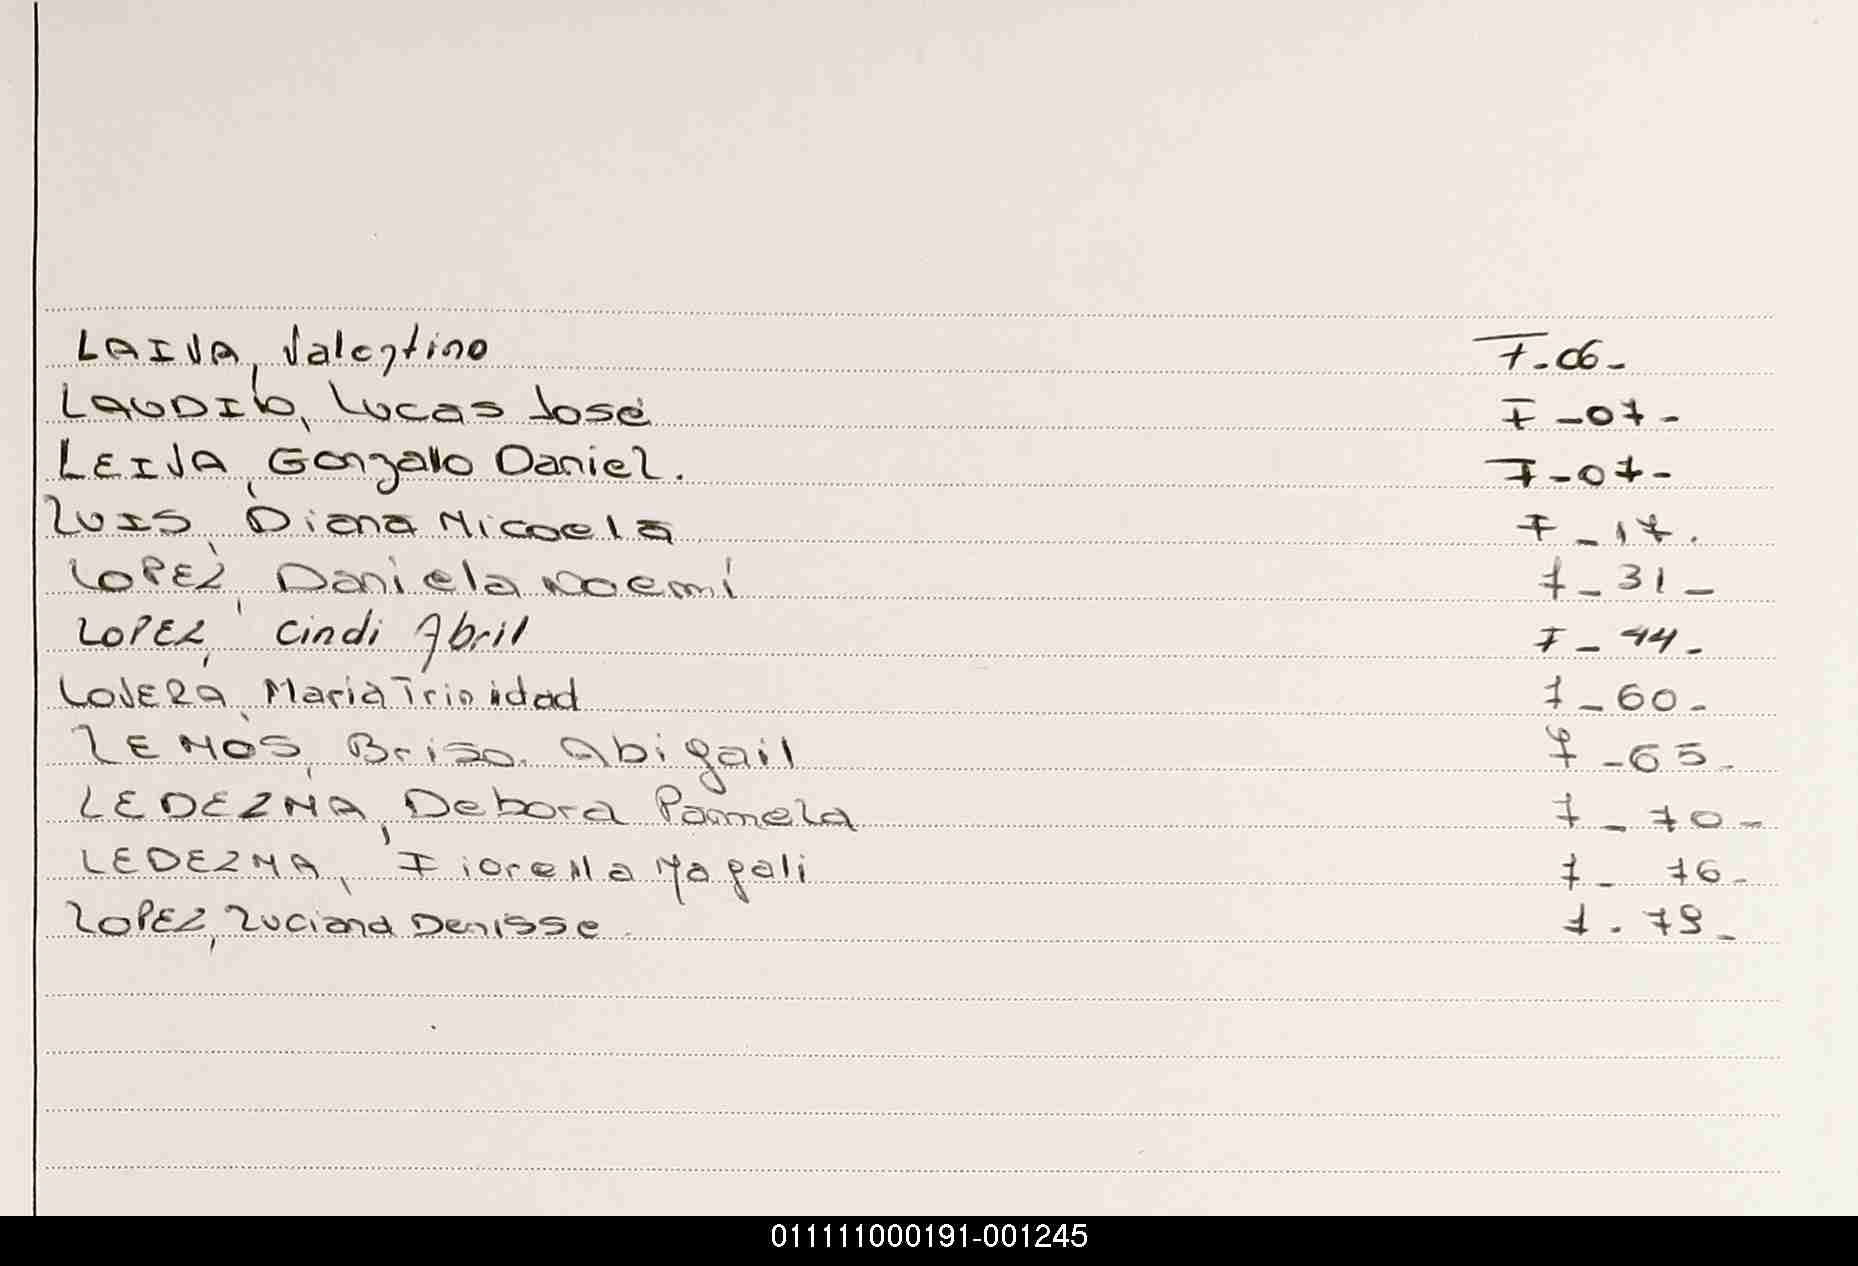 LAIVA, Valentino 7-06-
LAUDILO, Lucas José 7-07-
LEIVA, Gonzalo Daniel. 7-07-
LUIS, Diana Micaela 7-17.
LOPEZ, Daniela Noemí 7-31-
LOPEZ, Cindi Abril 7-44-
LOVERA, Maria Trinidad 7-60-
LEMOS, Brisa Abigail 7-65-
LEDEZMA, Debora Pamela 7-70-
LEDEZMA, Fiorella Magali 7-76-
LOPEZ, Luciana Denisse 7-79-
011111000191-001245